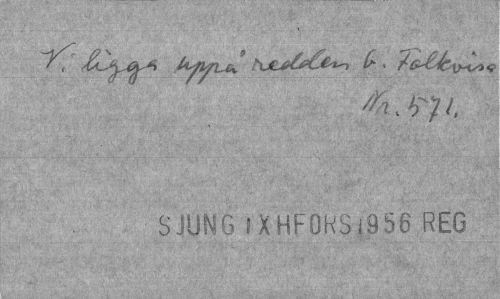 Vi ligga uppå redden b. Folkvisa
Nr. 571.
SJUNG IX HFORS 1956 REG